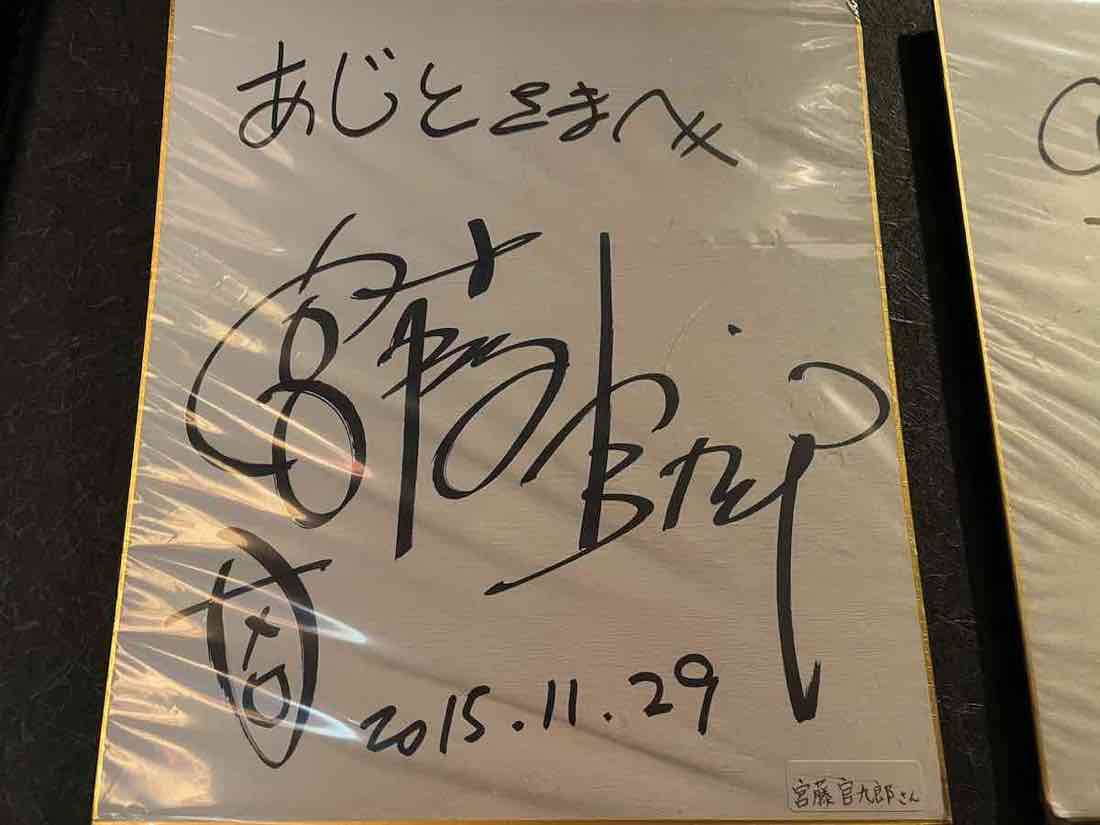 あじとさまへ
宮藤官九郎
2015.11.29
宮藤官九郎さん